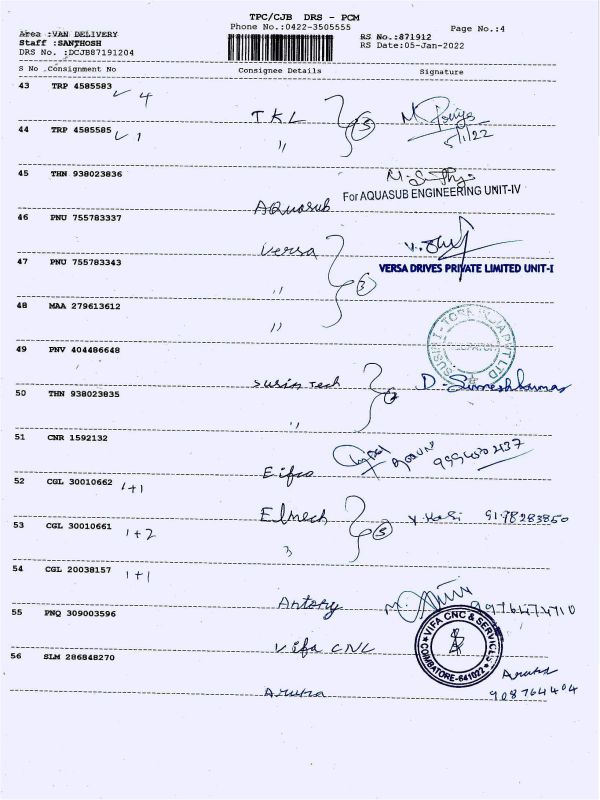 TPC/CJB DRS - PCM
Phone No.:0422-3505555
Page No.:4
Area :VAN DELIVERY
Staff :SANTHOSH
DRS No. :DCJB87191204
RS No.:871912
RS Date:05-Jan-2022
S No Consignment No Consignee Details Signature
43 TRP 4585583 4
TKL 5
5/1/22
44 TRP 4585585 1
"
45 THN 938023836
For AQUASUB ENGINEERING UNIT-IV
Aquasub
46 PNU 755783337
Versa
47 PNU 755783343
VERSA DRIVES PRIVATE LIMITED UNIT-I
" 3
48 MAA 279613612
"
49 PNV 404486648
50 THN 938023835
D. Sureshkumar
"
51 CNR 1592132
52 CGL 30010662 1+1
Elmech 5
53 CGL 30010661 1+2
54 CGL 20038157 1+1
Antony
55 PNQ 309003596
VIFA CNC & SERVICES
COIMBATORE-641022
Vifa CNC
56 SLM 286848270